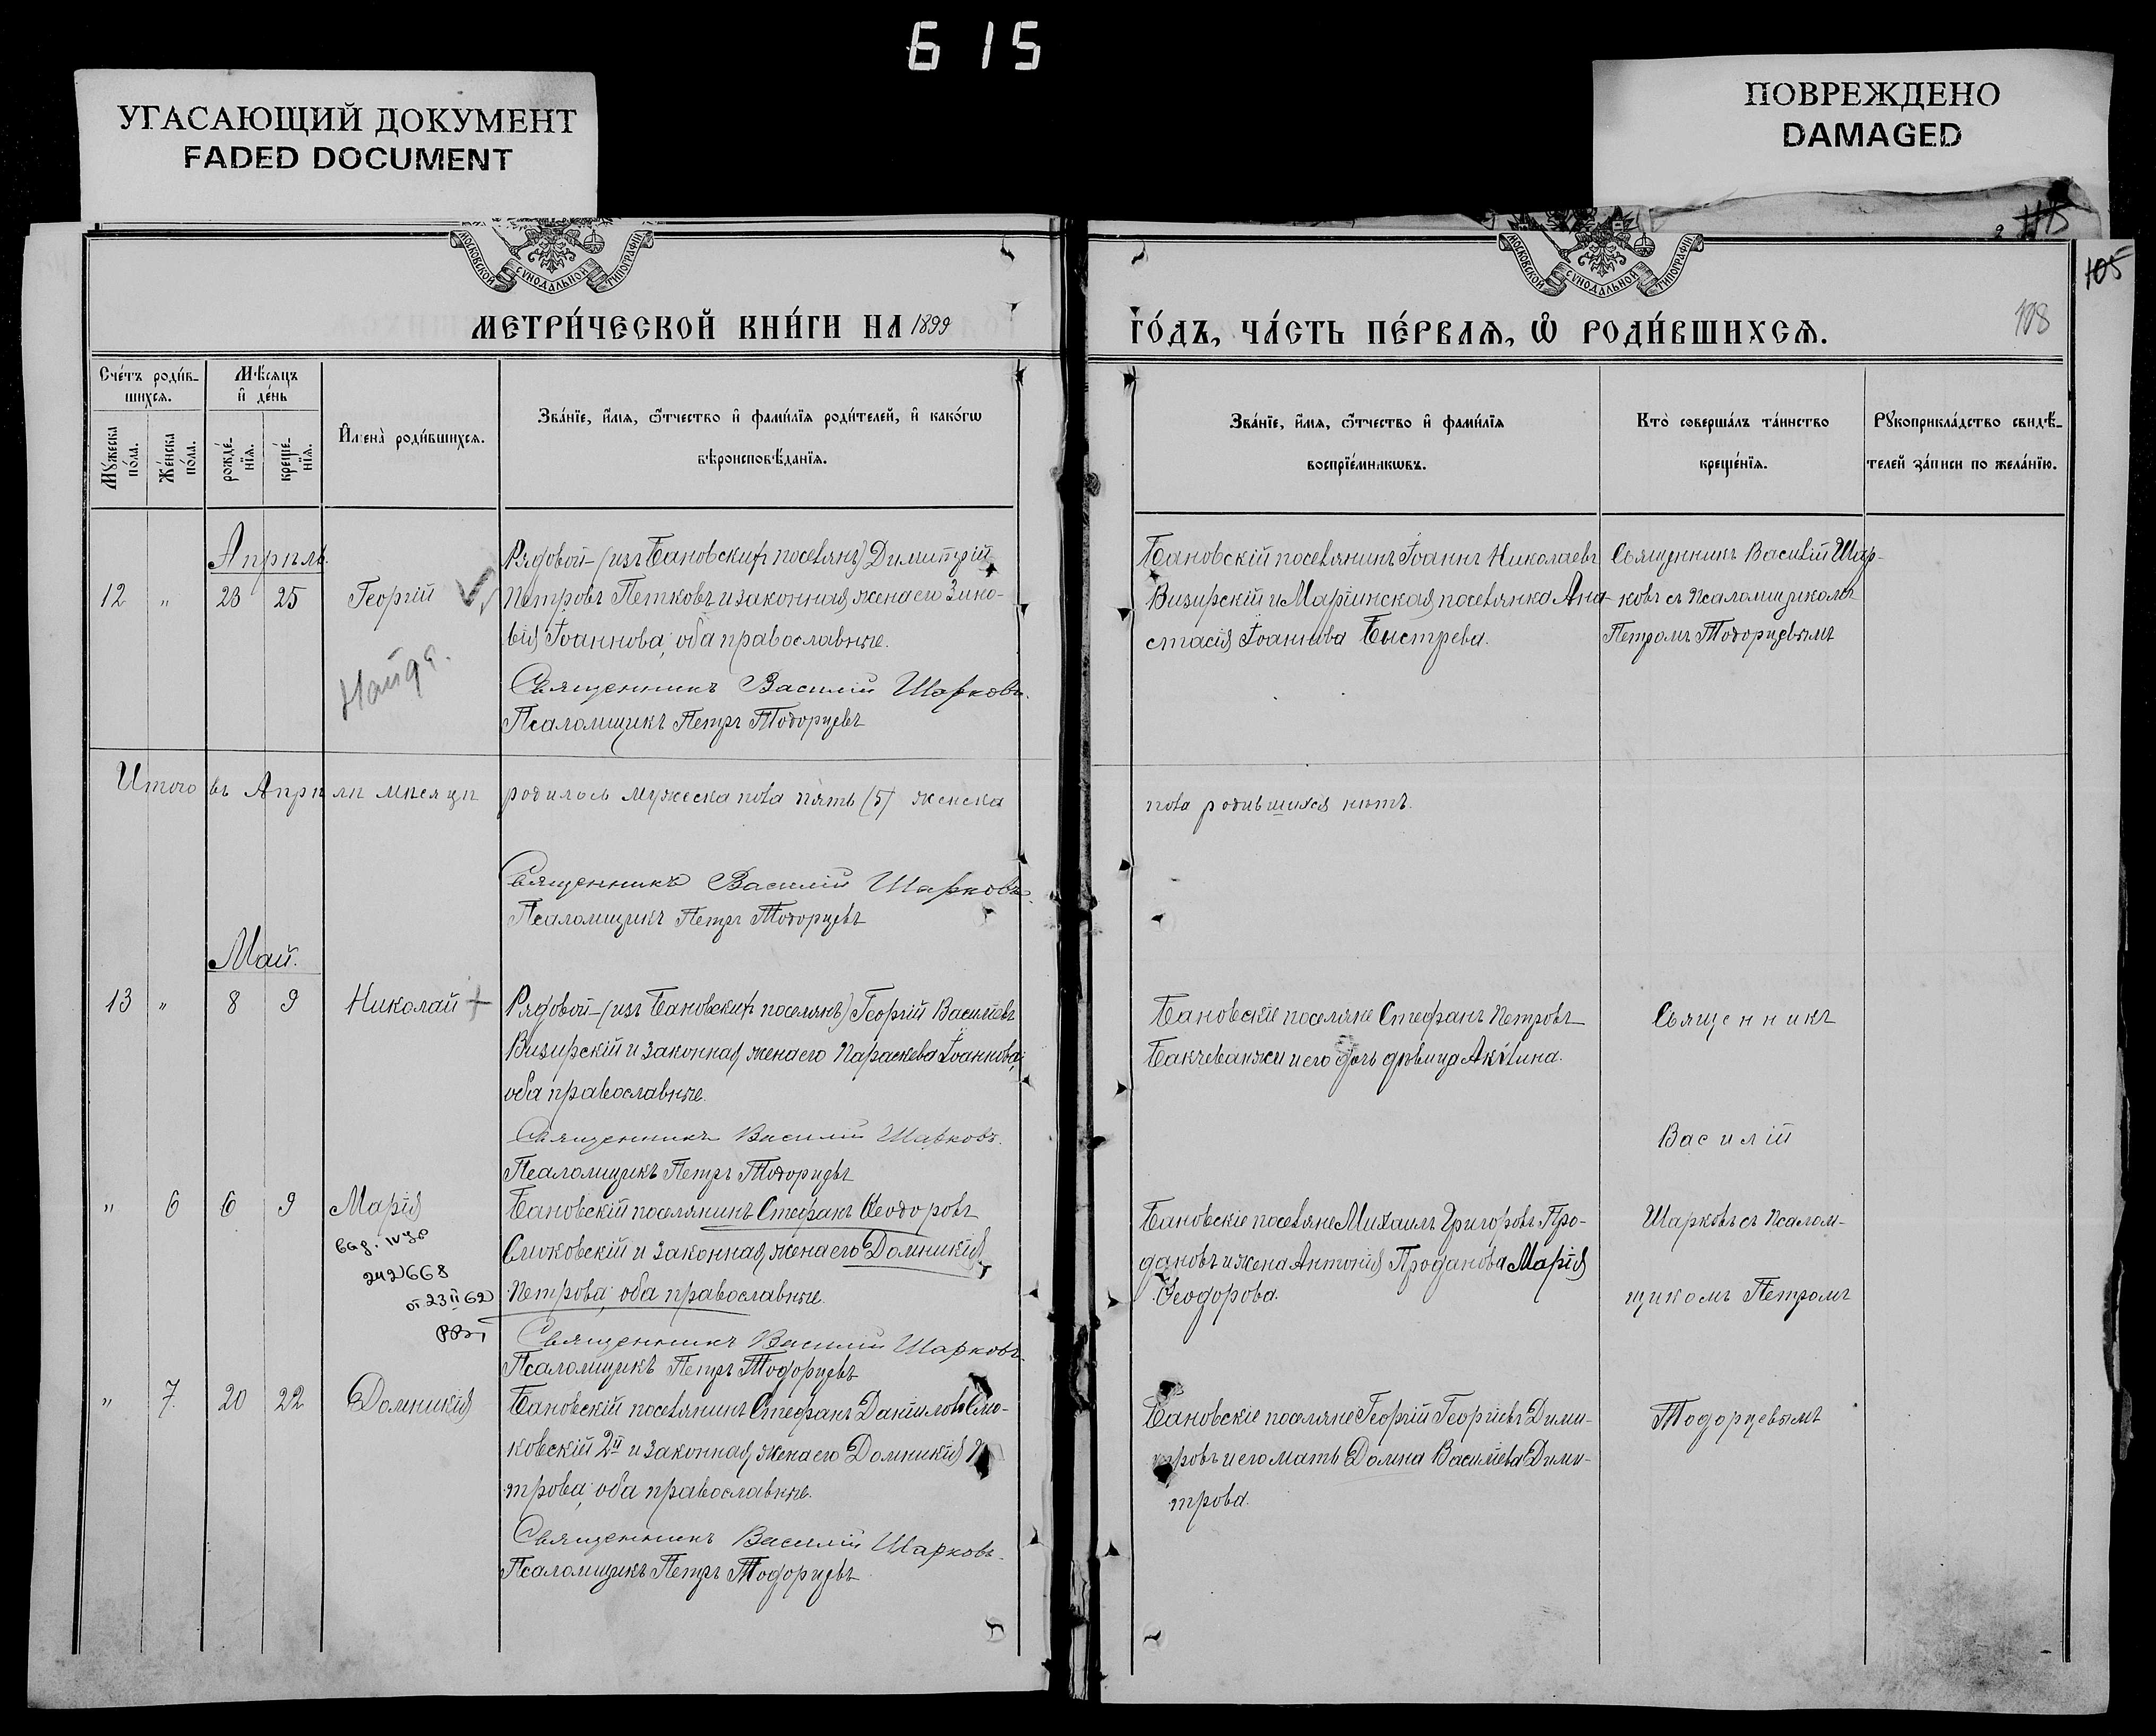 615
УГАСАЮЩИЙ ДОКУМЕНТ
FADED DOCUMENT
ПОВРЕЖДЕНО
DAMAGED
105
МОСКОВСКОЙ СѴНОДАЛЬНОЙ ТИПОГРАФІИ
МОСКОВСКОЙ СѴНОДАЛЬНОЙ ТИПОГРАФІИ
МЕТРИ́ЧЕСКОЙ КНИ́ГИ НА 1899
ГО́ДЪ, ЧА́СТЬ ПЕ́РВАѦ, Ѡ҆ РОДИ́ВШИХСѦ.
108
Сче́тъ роди́в-
шихся.
Мѣ́сяцъ
и҆ де́нь
Мꙋ́жеска по́ла.
Же́нска по́ла.
рожде́-нїя.
креще́-нїя.
И҆мена̀ роди́вшихся.
Зва́нїе, и҆́мя, ѻ҆́тчество и҆ фами́лїя роди́телей, и҆ како́гѡ
вѣроисповѣ́данїя.
Зва́нїе, и҆́мя, ѻ҆́тчество и҆ фами́лїя
воспрїе́мникѡвъ.
Кто̀ соверша́лъ та́инство
креще́нїя.
Рꙋкоприкла́дство свидѣ́-
телей за́писи по жела́нїю.
Апрѣль.
12 " 23 25 Георгій
Рядовой – (изъ Бановскихъ поселянъ) Димитрій
Петровъ Петковъ и законная жена его Зино-
вія Іоаннова, оба православные.
Священникъ Василій Шарковъ.
Псаломщикъ Петръ Тодорцевъ
Бановскій поселянинъ Іоаннъ Николаевъ
Визирскій и Маріинская поселянка Ана-
стасія Іоаннова Быстрева.
Священникъ Василій Шар-
ковъ съ Псаломщикомъ
Петромъ Тодорцевымъ
Итого въ Апрѣлѣ мѣсяцѣ родилось мужеска пола пять (5) женска
пола родившихся нѣтъ.
Священникъ Василій Шарковъ.
Псаломщикъ Петръ Тодорцевъ
Май.
13 " 8 9 Николай +
Рядовой – (изъ Бановскихъ поселянъ) Георгій Васильевъ
Визирскій и законная жена его Параскева Іоаннова,
оба православные.
Священникъ Василій Шарковъ.
Псаломщикъ Петръ Тодорцевъ
Бановскіе поселяне Стефанъ Петровъ
Бакчеванжи и его дочь дѣвица Акилина.
Священникъ
Василій
" 6 6 9 Марія
242668
от 23 II 62
Бановскій поселянинъ Стефанъ Ѳеодоровъ
Слюковскій и законная жена его Домникія
Петрова, оба православные.
Священникъ Василій Шарковъ.
Псаломщикъ Петръ Тодорцевъ
Бановскіе поселяне Михаилъ Григоровъ Про-
дановъ и жена Антонія Проданова Марія
Ѳеодорова.
Шарковъ съ Псалом-
щикомъ Петромъ
" 7. 20 22 Домникія
Бановскій поселянинъ Стефанъ Даніиловъ Слю-
ковскій 2й и законная жена его Домникія
трова, оба православные.
Священникъ Василій Шарковъ.
Псаломщикъ Петръ Тодорцевъ
Бановскіе поселяне Георгій Георгіевъ Дими-
тровъ и его мать Домна Васильева Дими-
трова.
Тодорцевымъ